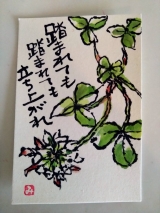 踏まれても
踏まれても
立ち上がれ